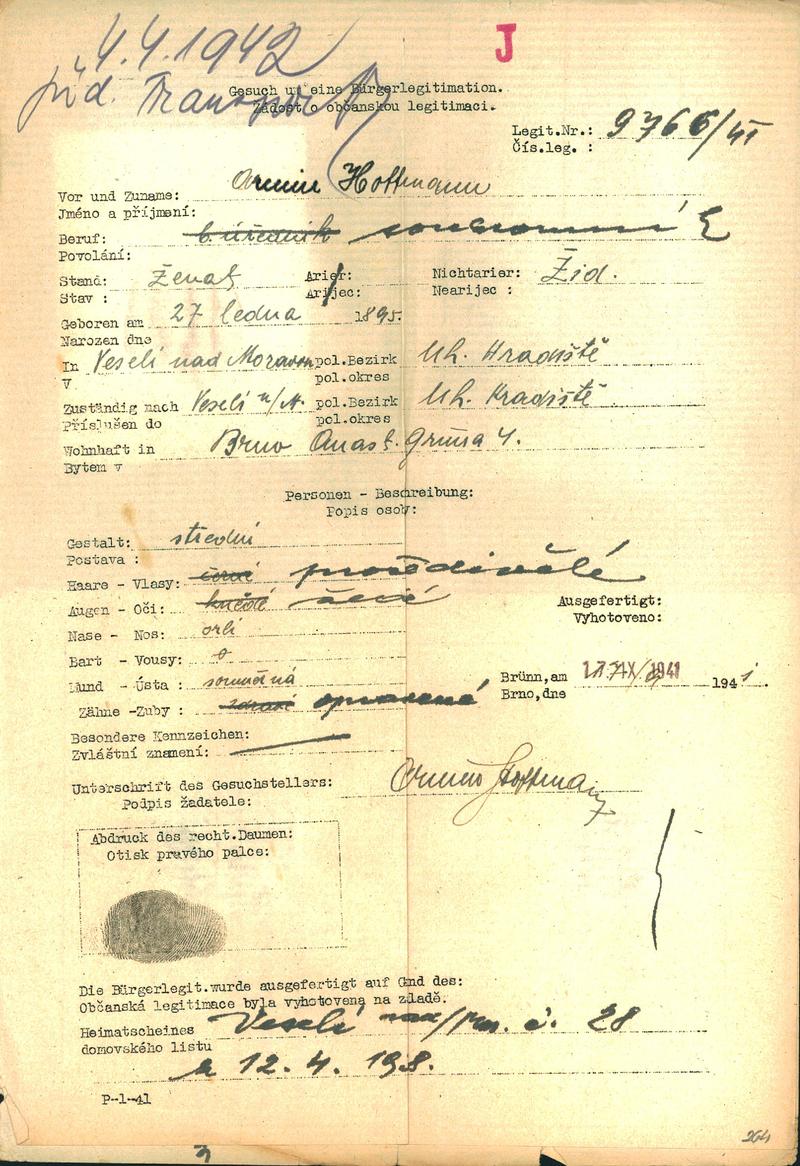 4.4.1942
J
žid. Transport
Gesuch um eine Bürgerlegitimation.
Žádost o občanskou legitimaci.
Legit.Nr.: 9766/VI
Čís.leg. :
Vor und Zuname: Armin Hoffmann
Jméno a příjmení:
Beruf: b. úředník soukromní
Povolání:
Stand: ženat Arier: Nichtarier: Žid.
Stav : Arijec: Nearijec :
Geboren am 27 ledna 1895.
Narozen dne
In Veselí nad Moravou pol.Bezirk Uh. Hradiště
V pol.okres
Zuständig nach Veselí n/M. pol.Bezirk Uh. Hradiště
Příslušen do pol.okres
Wohnhaft in Brno Anast. Grüna 4.
Bytem v
Personen - Beschreibung:
Popis osoby:
Gestalt: střední
Postava :
Haare - Vlasy: černé prošedivělé
Augen - Oči: hnědé
Ausgefertigt:
Vyhotoveno:
Nase - Nos: orlí
Bart - Vousy: 0
Mund - Ústa : souměrná
Brünn,am 17.IX.1941 1941.
Brno,dne
Zähne -Zuby : zdravé opravené
Besondere Kennzeichen:
Zvláštní znamení:
Unterschrift des Gesuchstellers: Armin Hoffmann
Podpis žadatele:
Abdruck des recht.Daumen:
Otisk pravého palce:
Die Bürgerlegit.wurde ausgefertigt auf Gnd des:
Občanská legitimace byla vyhotovena na zladě.
Heimatscheines Veselí nad/Mor. č. 28
domovského listu
z 12. 4. 1918.
P-1-41
264